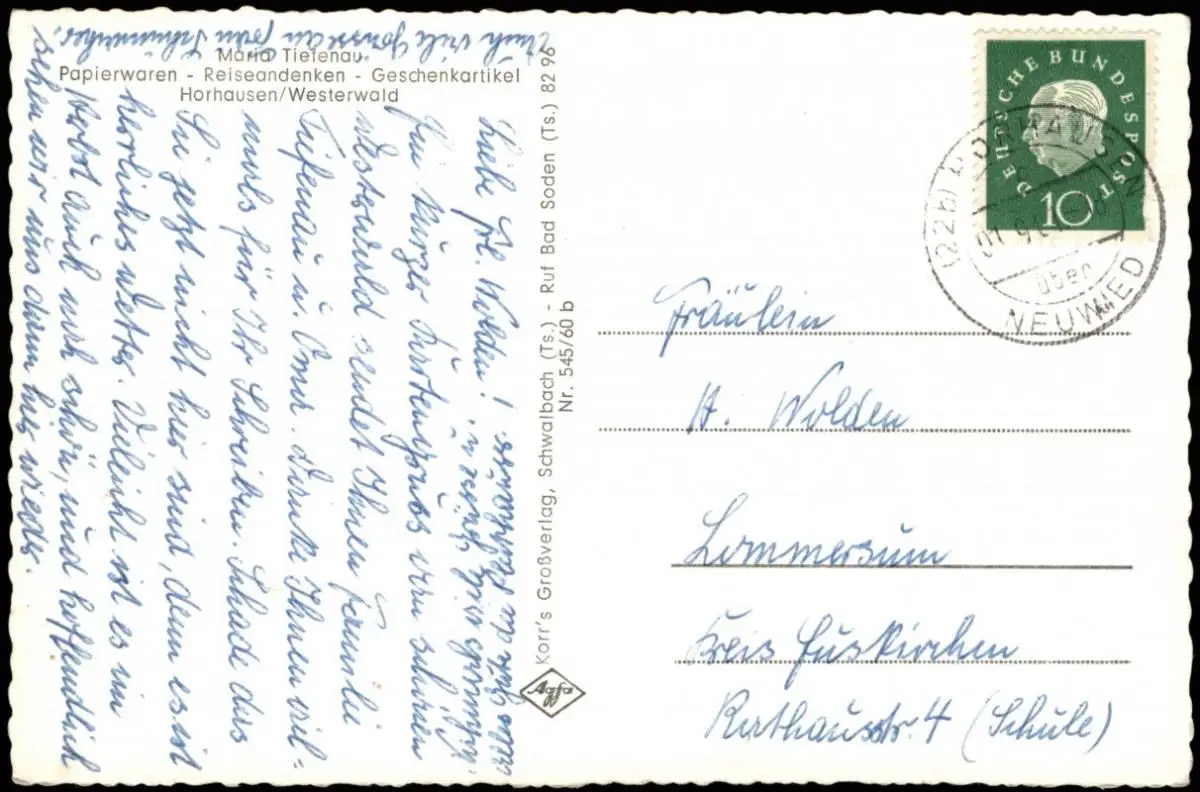 Maria Tiefenau
Papierwaren - Reiseandenken - Geschenkartikel
Horhausen/Westerwald
Liebe Frl. Wolden!
Ein kurzer Kartengruss vom schönen
Westerwald sendet Ihnen Familie
Tiefenau u. Oma. Danke Ihnen viel-
mals für Ihr Schreiben. Schade das
Sie jetzt nicht hier sind, denn es ist
herrliches Wetter. Vieleicht ist es im
Herbst auch noch schön, und hoffendlich
sehen wir uns dann hier wieder.
Auch viele Grüsse an Frau
Korr's Großverlag, Schwalbach (Ts.) - Ruf Bad Soden (Ts.) 82 96
Nr. 545/60 b
Agfa
DEUTSCHE BUNDESPOST
10
(22b) HORHAUSEN
über
NEUWIED
Fräulein
A. Wolden
Lommersum
Kreis Euskirchen
Rathausstr. 4 (Schule)